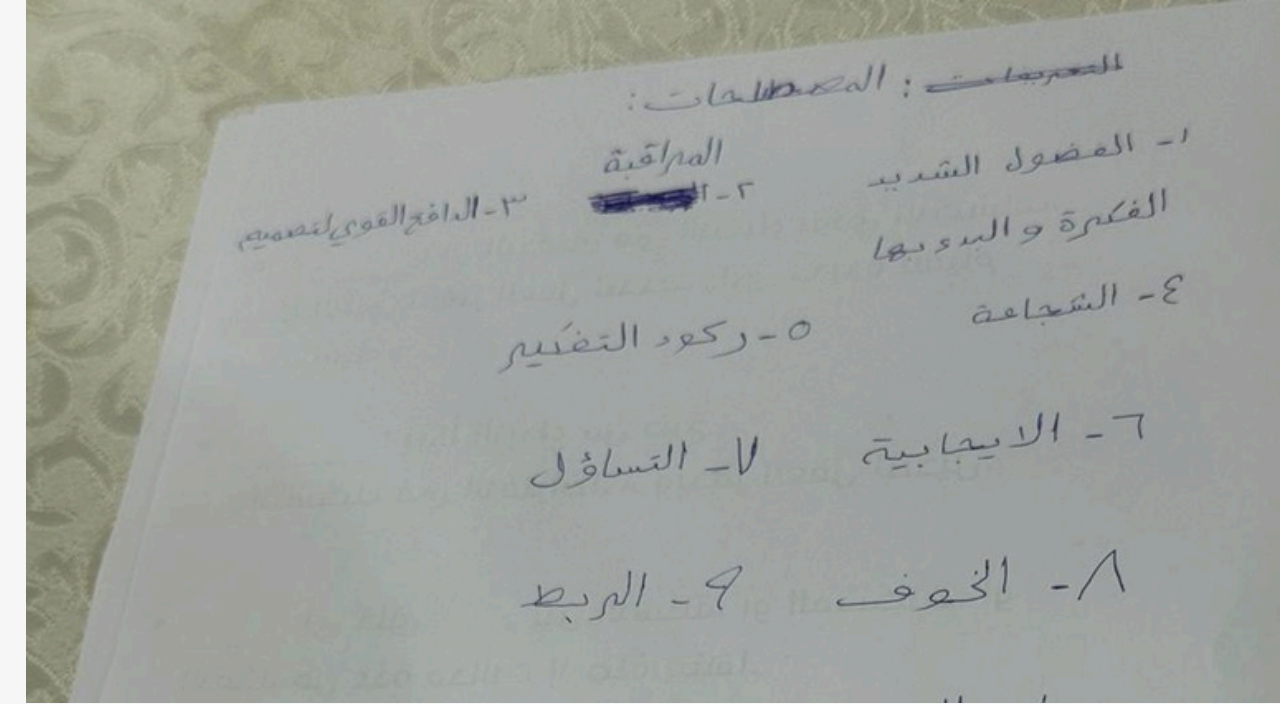 التعريفات : المصطلحات :
١- الفضول الشديد ٢- المراقبة ٣- الدافع القوي لتصميم
الفكرة والبدء بها
٤- الشجاعة ٥- ركود التفكير
٦- الايجابية ٧- التساؤل
٨- الخوف ٩- الربط